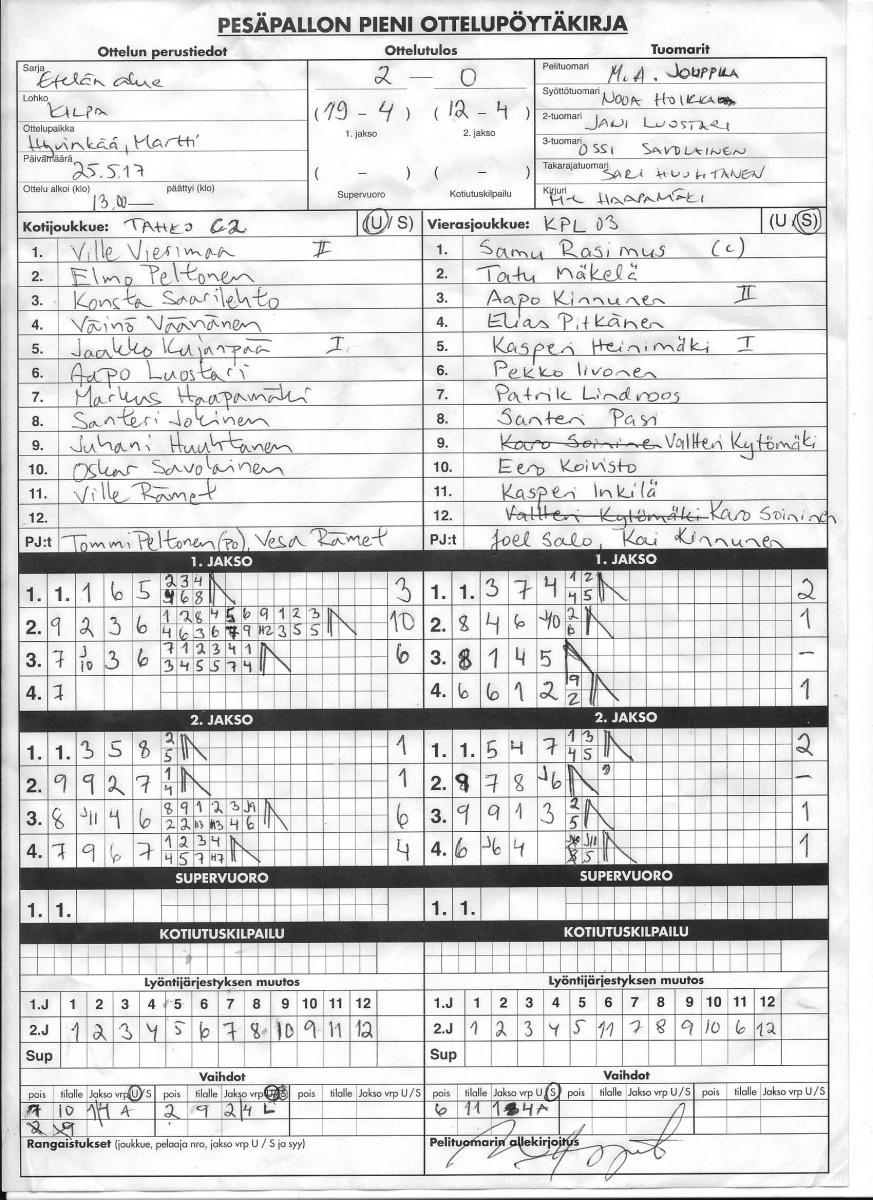 PESÄPALLON PIENI OTTELUPÖYTÄKIRJA
Ottelun perustiedot Ottelutulos Tuomarit
Sarja Etelän alue
Lohko KILPA
Ottelupaikka Hyvinkää, Martti
Päivämäärä 25.5.17
Ottelu alkoi (klo) 13.00 päättyi (klo)
2 — 0
(19 - 4) (12 - 4)
1. jakso 2. jakso
( - ) ( - )
Supervuoro Kotiutuskilpailu
Pelituomari M.A. JOUPPILA
Syöttötuomari NOOA HOIKKA
2-tuomari JANI LUOSTARI
3-tuomari OSSI SAVOLAINEN
Takarajatuomari SARI HUUHTANEN
Kirjuri HAAPAMÄKI
Kotijoukkue: TAHKO C2 (U/S)
1. Ville Vierimaa II
2. Elmo Peltonen
3. Konsta Saarilehto
4. Väinö Väänänen
5. Jaakko Kujanpää I
6. Aapo Luostari
7. Markus Haapamäki
8. Santeri Jokinen
9. Juhani Huuhtanen
10. Oskar Savolainen
11. Ville Rämet
12.
PJ:t Tommi Peltonen (PO), Vesa Rämet
Vierasjoukkue: KPL 03 (U/S)
1. Samu Rasimus (c)
2. Tatu Mäkelä
3. Aapo Kinnunen II
4. Elias Pitkänen
5. Kasperi Heinimäki I
6. Pekko Iivonen
7. Patrik Lindroos
8. Santeri Pasi
9. Karo Soininen Valtteri Kytömäki
10. Eero Koivisto
11. Kasperi Inkilä
12. Valtteri Kytömäki Karo Soininen
PJ:t Joel Salo, Kai Kinnunen
1. JAKSO
1. 1. 1 6 5 2 3 4 3
6 8
2. 9 2 3 6 1 2 8 4 5 6 9 1 2 3 10
4 6 3 6 7 9 H2 3 5 5
3. 7 J10 3 6 7 1 2 3 4 1 6
3 4 5 5 7 4
4. 7
1. JAKSO
1. 1. 3 7 4 1 2 2
4 5
2. 8 4 6 J10 2 1
6
3. 8 1 4 5 –
4. 6 6 1 2 9 1
2
2. JAKSO
1. 1. 3 5 8 2 1
5
2. 9 9 2 7 1 1
4
3. 8 J11 4 6 8 9 1 2 3 J9 6
2 2 H3 H3 4 6
4. 7 9 6 7 1 2 3 4 4
4 5 7 H7
2. JAKSO
1. 1. 5 4 7 1 3 2
4 5
2. 9 7 8 J6 –
3. 9 9 1 3 2 1
5
4. 6 J6 4 J11 1
5
SUPERVUORO SUPERVUORO
1. 1. 1. 1.
KOTIUTUSKILPAILU KOTIUTUSKILPAILU
Lyöntijärjestyksen muutos
1.J 1 2 3 4 5 6 7 8 9 10 11 12
2.J 1 2 3 4 5 6 7 8 10 9 11 12
Sup
Lyöntijärjestyksen muutos
1.J 1 2 3 4 5 6 7 8 9 10 11 12
2.J 1 2 3 4 5 11 7 8 9 10 6 12
Sup
Vaihdot
pois tilalle Jakso vrp U/S pois tilalle Jakso vrp U/S
7 10 1/4 A 2 9 2/4 L
Vaihdot
pois tilalle Jakso vrp U/S pois tilalle Jakso vrp U/S pois tilalle Jakso vrp U/S
6 11 1 4 A
Rangaistukset (joukkue, pelaaja nro, jakso vrp U / S ja syy)
Pelituomarin allekirjoitus